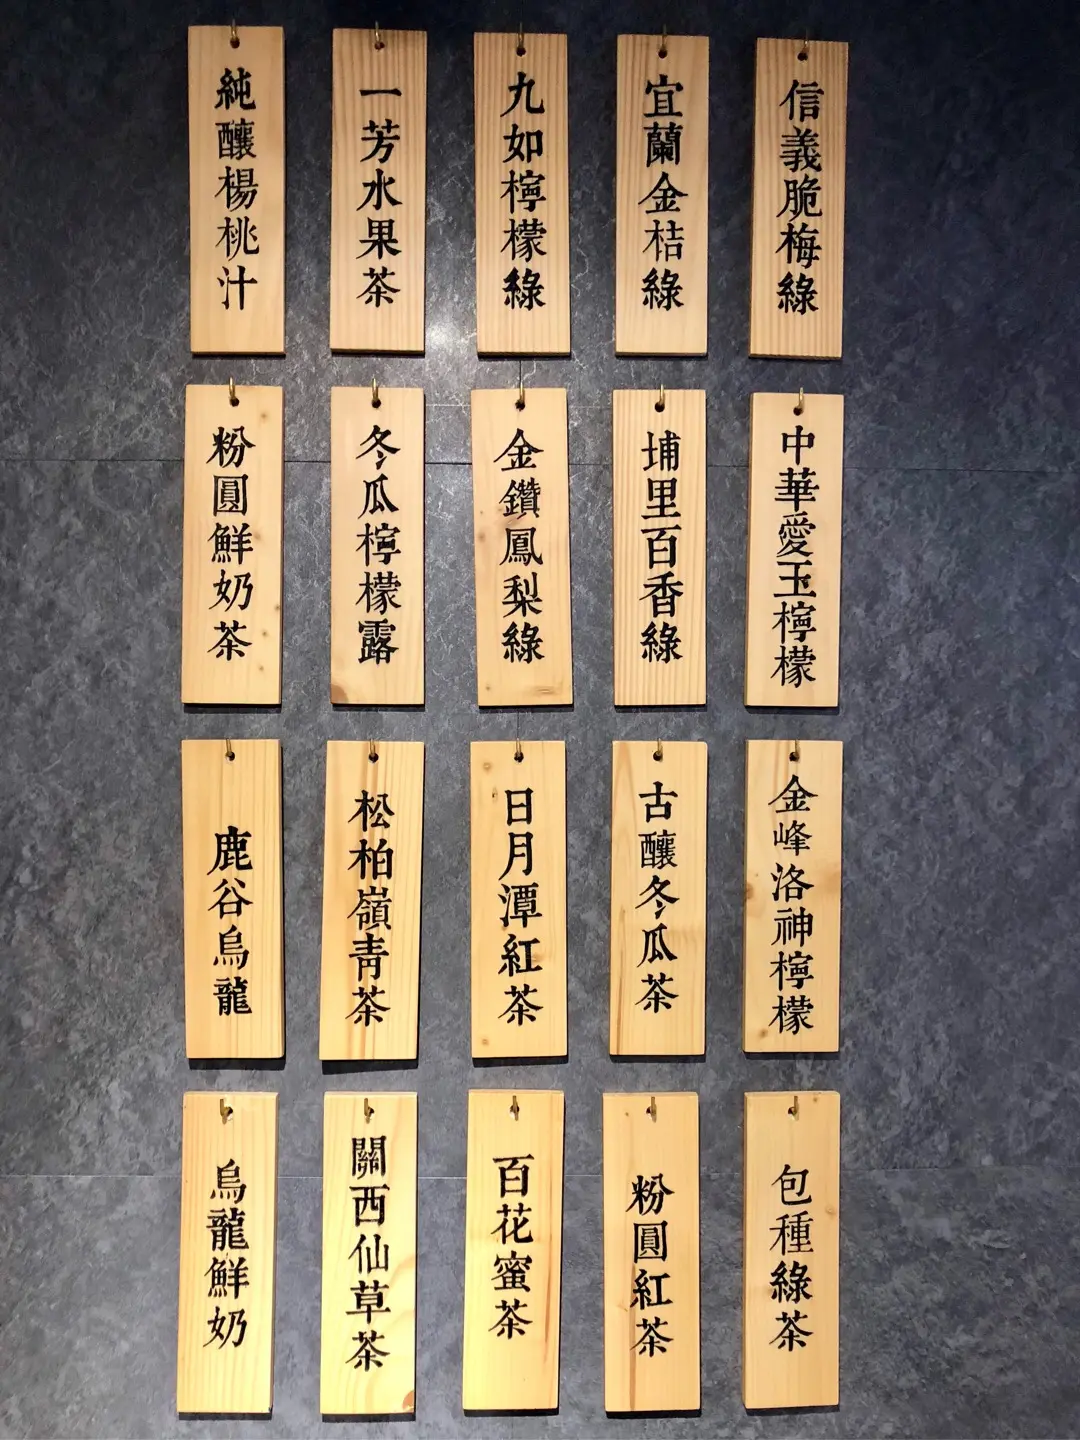 純釀楊桃汁
一芳水果茶
九如檸檬綠
宜蘭金桔綠
信義脆梅綠
粉圓鮮奶茶
冬瓜檸檬露
金鑽鳳梨綠
埔里百香綠
中華愛玉檸檬
鹿谷烏龍
松柏嶺青茶
日月潭紅茶
古釀冬瓜茶
金峰洛神檸檬
烏龍鮮奶
關西仙草茶
百花蜜茶
粉圓紅茶
包種綠茶